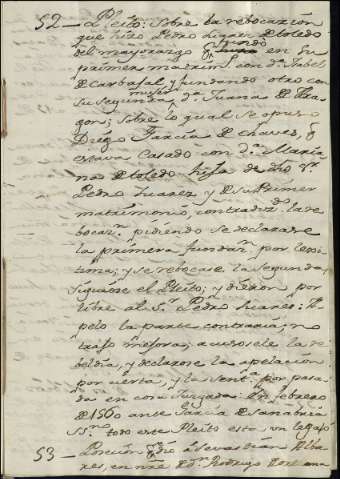 52 - Pleito; sobre la rebocazion
que hizo Pedro Suarez de Toledo
del mayorazgo q.e fundo en su
primer matrim.o con d.a Isabel
de Carbajal y fundando otro con
su segunda muger d.a Juana de Ara
gon; sobre lo qual se opuso
Diego Garcia de Chaves, q.
estava casado con d.a Maria
na de Toledo hija de dho s.r
Pedro Suarez y de su Primer
matrimonio, contradiz.do la re
bocaz.n pidiendo se declarase
la primera fundaz.n por lexi
tima; y se rebocase la segunda,
siguiose el Pleito; y dieron por
libre al S.r Pedro Suarez: A
pelo la parte contraria; no
trajo mejora; acusosele la re
beldia, y declarose la apelacion
por desierta, y la sent.a por pasa
da en cosa Juzgada: En febrero
de 1560 ante Garcia de Sanabria
SS.no todo este Pleito esta en legajo
53 - Porcion q.e dio a Sevastian Alba
rez, en n.re de d.n Rodrigo Orellana